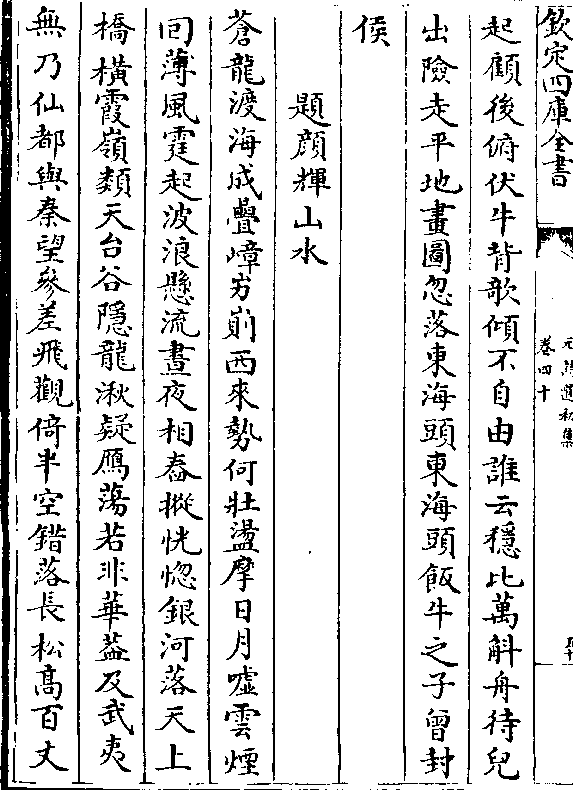 欽定四庫全書
元詩選初集
卷四十
起顧後俯伏牛背歌傾不自由誰云穩比萬斛舟待兒
出險走平地畫圖忽落東海頭東海頭飯牛之子曾封
侯
題顔輝山水
蒼龍渡海成疊嶂岃崱西來勢何壯盪摩日月噓雲煙
囘薄風霆起波浪懸流晝夜相舂摐恍惚銀河落天上
橋橫霞嶺類天台谷隱龍湫疑鴈蕩若非華葢及武夷
無乃仙都與秦望參差飛觀倚半空錯落長松髙百丈